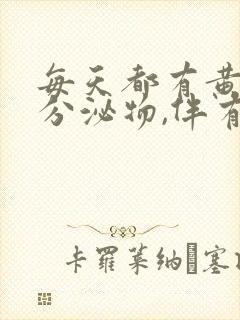 每天都有黄
分泌物,伴有
卡罗莱纳·塞